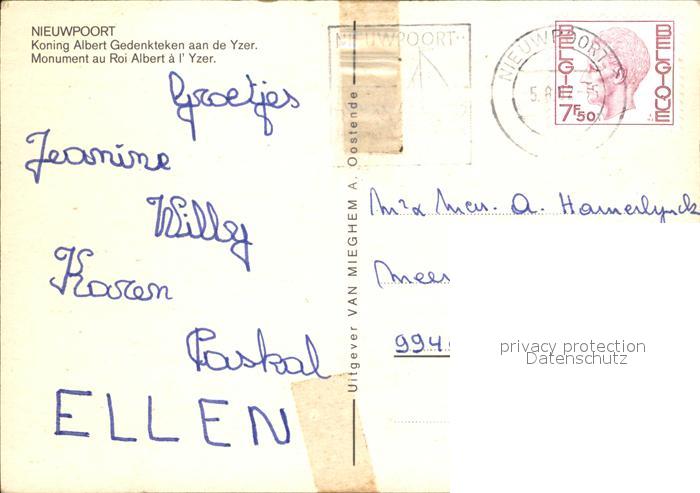 NIEUWPOORT
Koning Albert Gedenkteken aan de Yzer.
Monument au Roi Albert à l' Yzer.
Groetjes
Jeanine
Willy
Karen
Paskal
ELLEN
Uitgever VAN MIEGHEM A. Oostende
NIEUWPOORT
NIEUWPOORT
5.8
BELGIE
BELGIQUE
7F50
A. Hamerlynck
994
privacy protection
Datenschutz